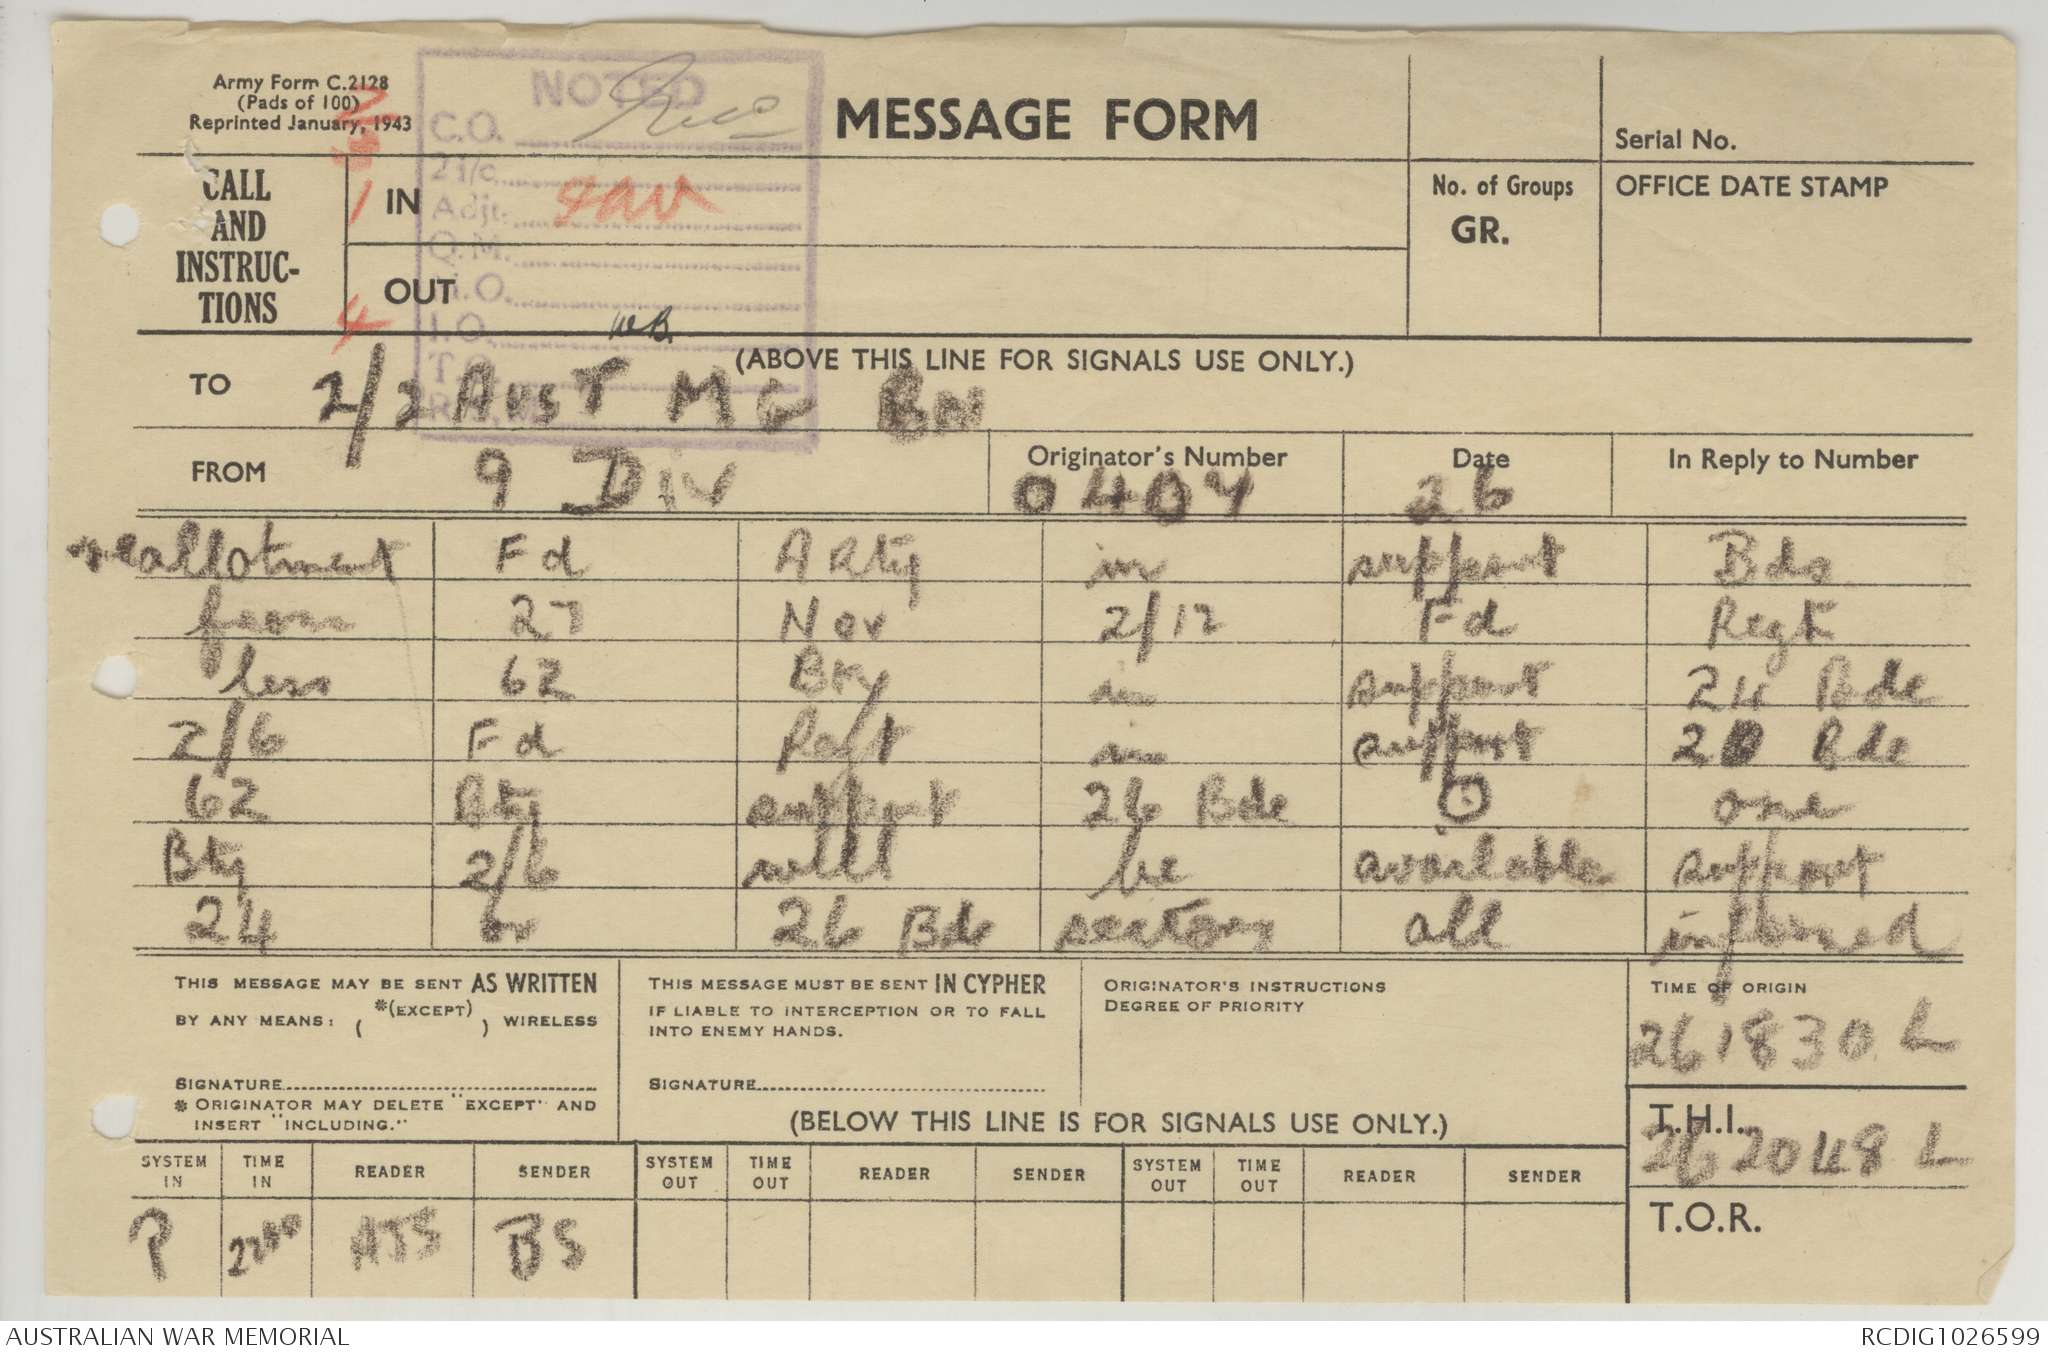 Army Form C.2128
(Pads of 100)
Reprinted January, 1943
NOTED
C.O.
2 i/c
Adjt.
Q.M.
I.O.
T.O.
MESSAGE FORM
Serial No.
CALL AND INSTRUC-TIONS
IN
OUT
No. of Groups
GR.
OFFICE DATE STAMP
4
(ABOVE THIS LINE FOR SIGNALS USE ONLY.)
TO 2/2 AUST MG BN
FROM 9 DIV Originator's Number 0404 Date 26 In Reply to Number
reallotment Fd ARty in support Bds
from 27 Nov 2/12 Fd Regt
less 62 Bty in support 24 Bde
2/6 Fd Regt in support 20 Bde
62 Bty support 26 Bde . one
Bty 2/6 will be available support
24 or 26 Bde sectors all informed
THIS MESSAGE MAY BE SENT AS WRITTEN
BY ANY MEANS: ( *(EXCEPT) ) WIRELESS
SIGNATURE
* ORIGINATOR MAY DELETE "EXCEPT" AND
INSERT "INCLUDING."
THIS MESSAGE MUST BE SENT IN CYPHER
IF LIABLE TO INTERCEPTION OR TO FALL
INTO ENEMY HANDS.
SIGNATURE
ORIGINATOR'S INSTRUCTIONS
DEGREE OF PRIORITY
TIME OF ORIGIN
261830 L
(BELOW THIS LINE IS FOR SIGNALS USE ONLY.)
T.H.I.
262048 L
T.O.R.
SYSTEM IN TIME IN READER SENDER SYSTEM OUT TIME OUT READER SENDER SYSTEM OUT TIME OUT READER SENDER
P AJS BS
AUSTRALIAN WAR MEMORIAL
RCDIG1026599